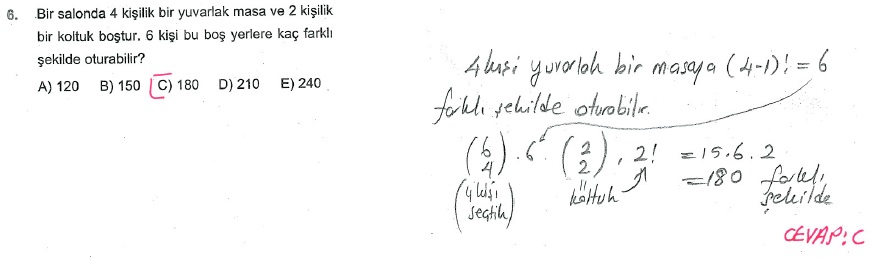 6. Bir salonda 4 kişilik bir yuvarlak masa ve 2 kişilik
bir koltuk boştur. 6 kişi bu boş yerlere kaç farklı
şekilde oturabilir?
A) 120 B) 150 C) 180 D) 210 E) 240
4 kişi yuvarlak bir masaya (4-1)! = 6
farklı şekilde oturabilir.
(6 4) . 6 . (2 2) . 2! = 15.6.2
= 180 farklı şekilde
(4 kişi seçtik)
koltuk
CEVAP: C